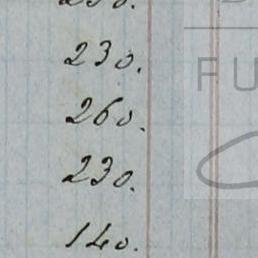 230.
260.
230.
140.
FU